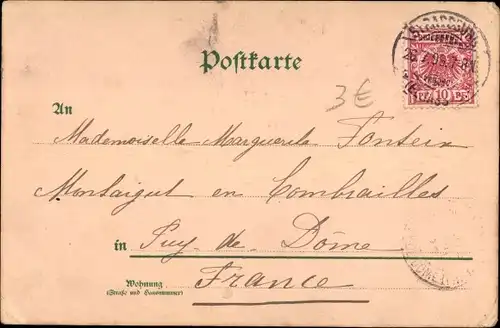 Postkarte
3€
An
Mademoiselle Marguerite
Montaigut en Combrailles
in Puy-de-Dôme
Wohnung France
(Straße und Hausnummer)
10